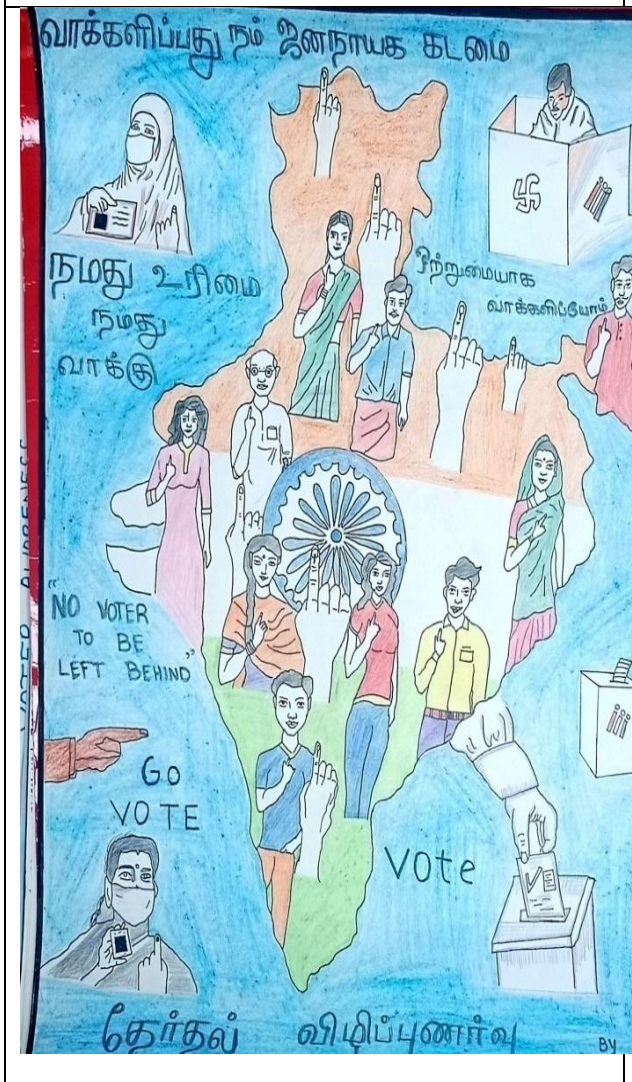 வாக்களிப்பது நம் ஜனநாயக கடமை
நமது உரிமை
நமது
வாக்கு
ஒற்றுமையாக
வாக்களிப்போம்
"NO VOTER
TO BE
LEFT BEHIND"
GO
VOTE
Vote
தேர்தல் விழிப்புணர்வு
By